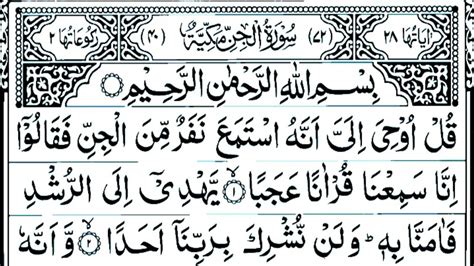 اٰیَاتُهَا ٢٨ (٧٢) سُوْرَةُ الْجِنِّ مَكِّیَّةٌ (٤٠) رُكُوْعَاتُهَا ٢
بِسْمِ اللّٰهِ الرَّحْمٰنِ الرَّحِیْمِ
قُلْ اُوْحِیَ اِلَیَّ اَنَّهُ اسْتَمَعَ نَفَرٌ مِّنَ الْجِنِّ فَقَالُوْۤا
اِنَّا سَمِعْنَا قُرْاٰنًا عَجَبًا ١ یَّهْدِیْۤ اِلَی الرُّشْدِ
فَاٰمَنَّا بِهٖ ؕ وَلَنْ نُّشْرِكَ بِرَبِّنَاۤ اَحَدًا ٢ وَّاَنَّهٗ